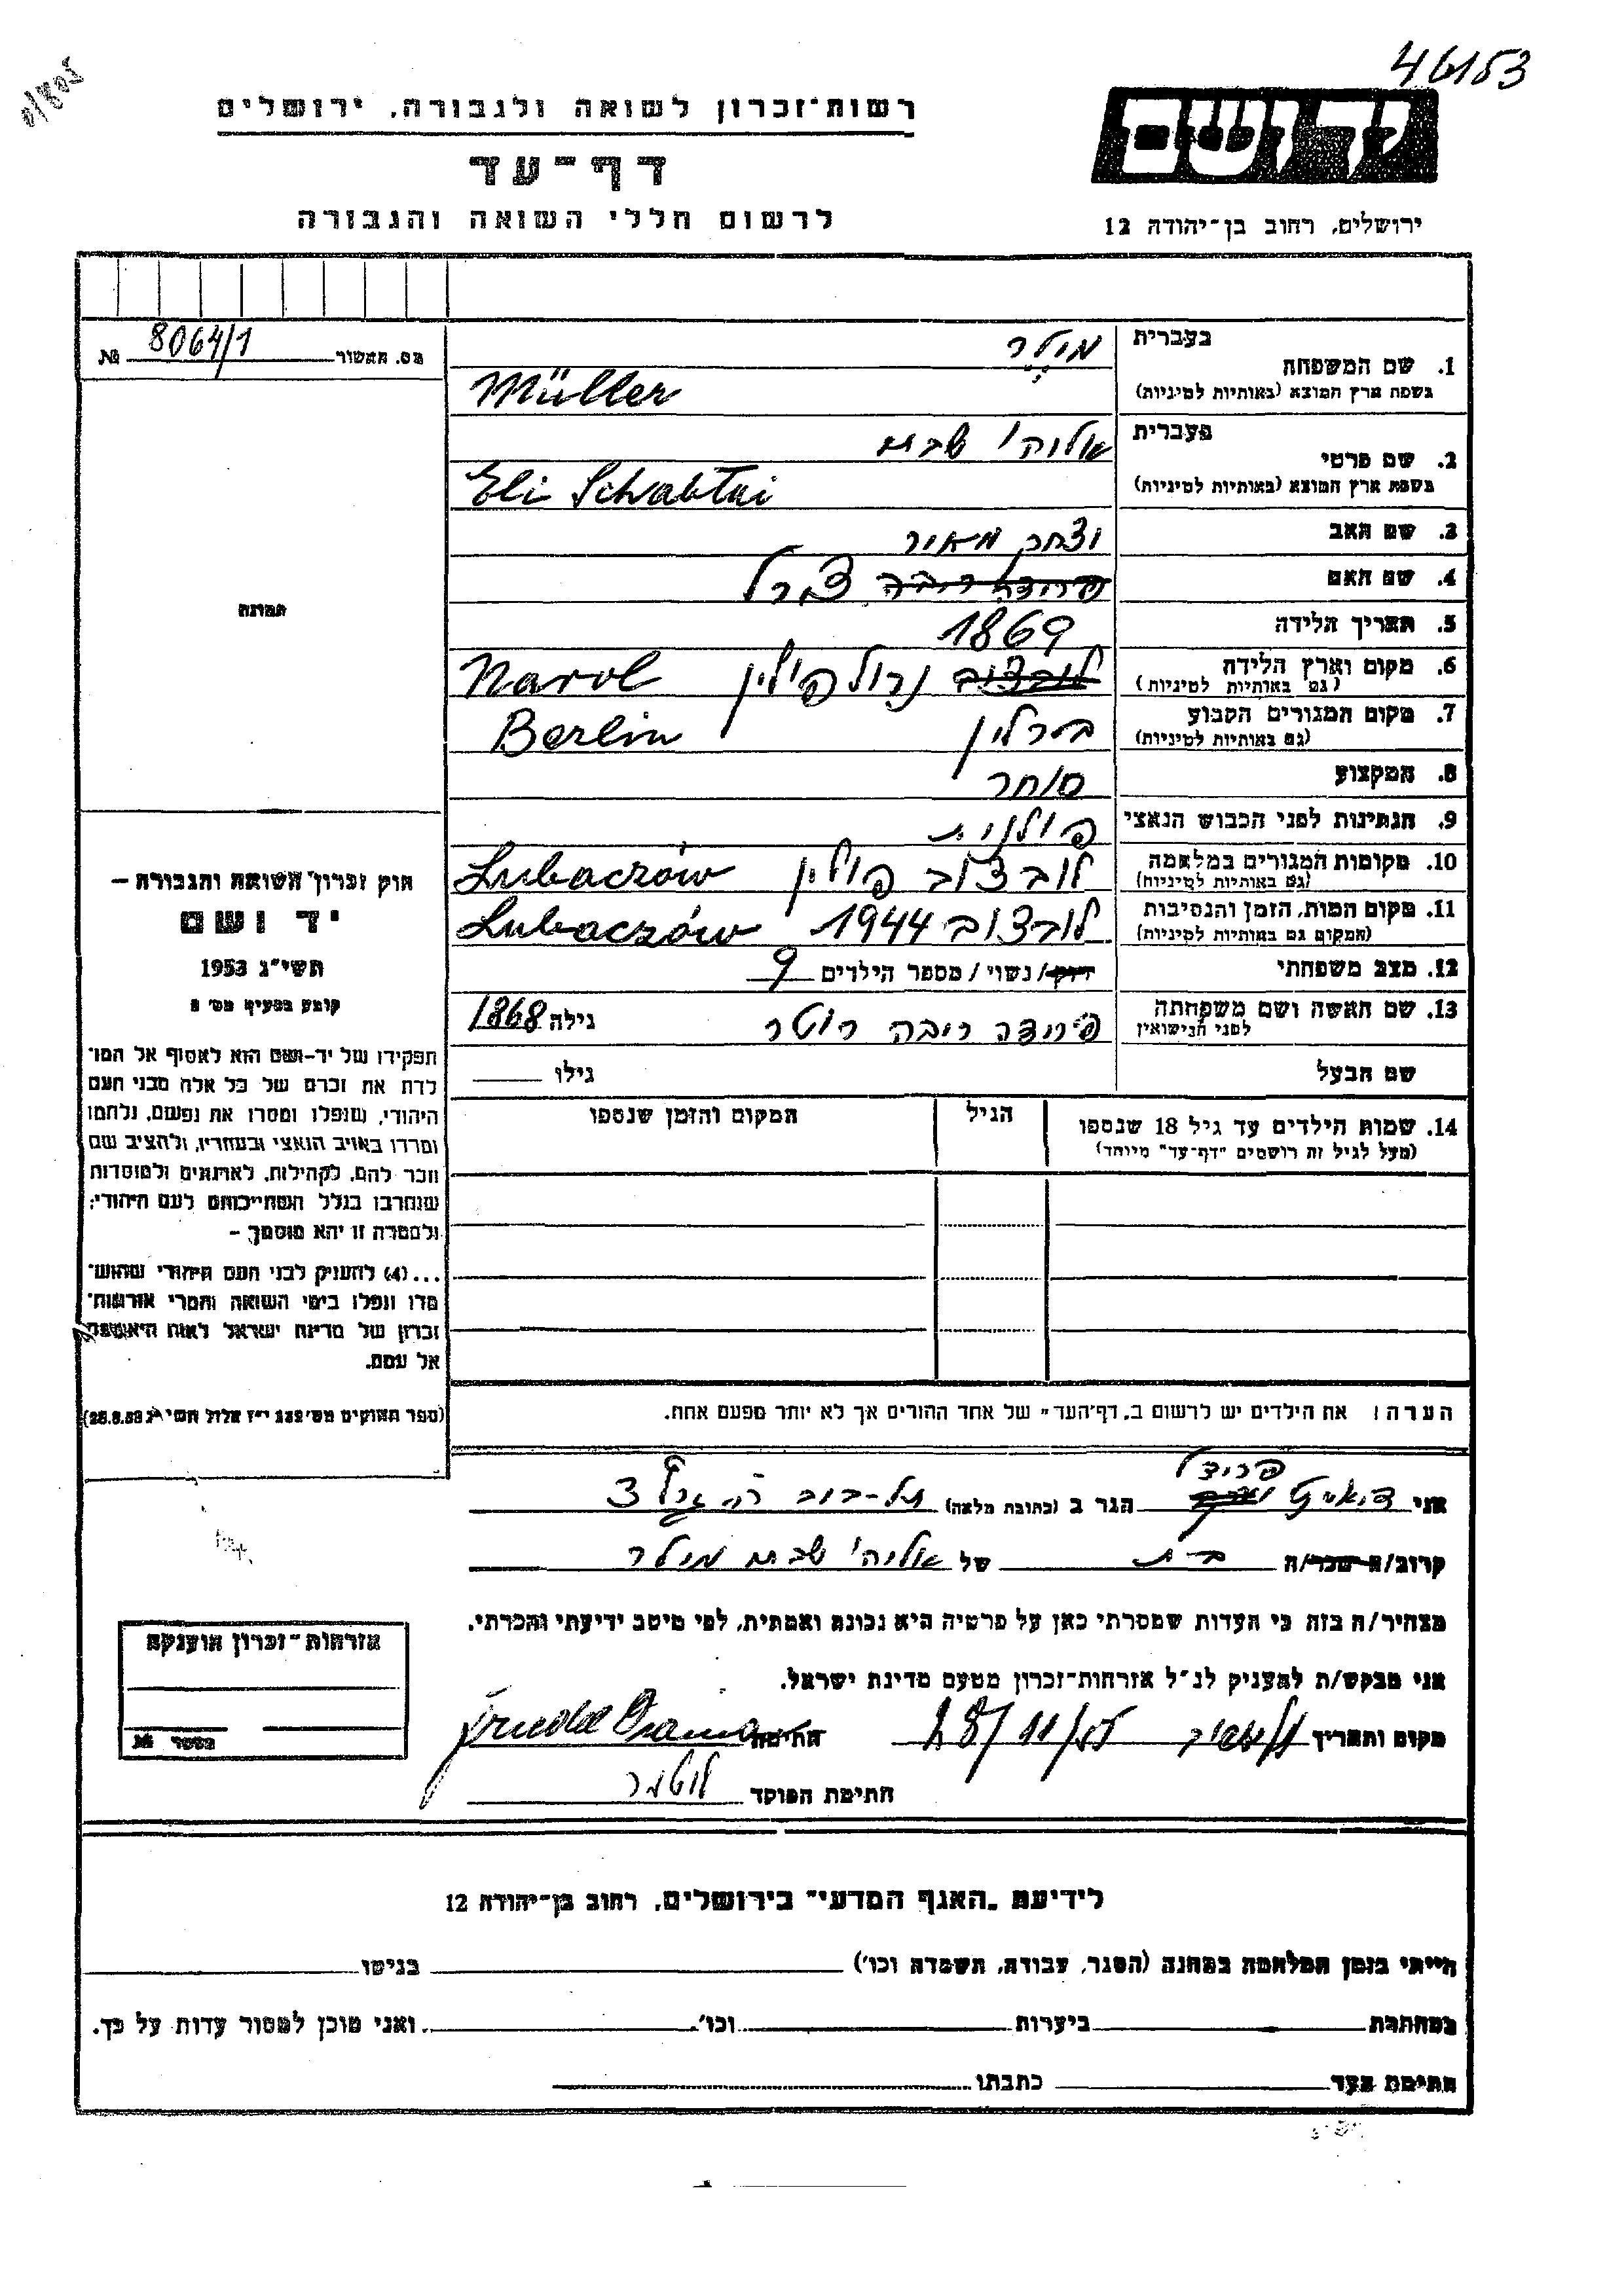 46153
רשות־זכרון לשואה ולגבורה, ירושלים
דף־עד
לרשום חללי השואה והגבורה
יד ושם
ירושלים, רחוב בן־יהודה 12
מס. האשור 8064/1 №
בעברית מילר
1. שם המשפחה
בשפת ארץ המוצא (באותיות לטיניות) Müller
בעברית אליהו שבתי
2. שם פרטי
בשפת ארץ המוצא (באותיות לטיניות) Eli Schabtai
3. שם האב יצחק מאיר
4. שם האם פרידה ריבה פרל
5. תאריך הלידה 1869
6. מקום וארץ הלידה לובצוב נרול פולין Narol
(גם באותיות לטיניות)
7. מקום המגורים הקבוע ברלין Berlin
(גם באותיות לטיניות)
8. המקצוע סוחר
9. הנתינות לפני הכבוש הנאצי פולנית
10. מקומות המגורים במלחמה לובצוב פולין Lubaczów
(גם באותיות לטיניות)
11. מקום המות, הזמן והנסיבות לובצוב 1944 Lubaczów
(המקום גם באותיות לטיניות)
12. מצב משפחתי רווק/נשוי/מספר הילדים 9
13. שם האשה ושם משפחתה פרידה ריבה רוטר גילה 1868
לפני הנישואין
שם הבעל גילו
14. שמות הילדים עד גיל 18 שנספו הגיל המקום והזמן שנספו
(מעל לגיל זה רושמים "דף־עד" מיוחד)
תמונה
חוק זכרון השואה והגבורה –
יד ושם
תשי"ג 1953
קובע בסעיף מס' 2
תפקידו של יד־ושם הוא לאסוף אל המו־
לדת את זכרם של כל אלה מבני העם
היהודי, שנפלו ומסרו את נפשם, נלחמו
ומרדו באויב הנאצי ובעוזריו, ולהציב שם
וזכר להם, לקהילות, לארגונים ולמוסדות
שנחרבו בגלל השתייכותם לעם היהודי;
ולמטרה זו יהא מוסמך –
...(4) להעניק לבני העם היהודי שהוש־
מדו ונפלו בימי השואה והמרי אזרחות־
זכרון של מדינת ישראל לאות היאספם
אל עמם.
(ספר החוקים מס' 132 י"ז אלול תשי"ג 28.8.53)
הערה: את הילדים יש לרשום ב"דף־העד" של אחד ההורים אך לא יותר מפעם אחת.
פרידל
אני הגר ב (כתובת מלאה) תל-אביב
קרוב/ה מכר/ה בת של אליהו שבתי מילר
מצהיר/ה בזה כי העדות שמסרתי כאן על פרטיה היא נכונה ואמתית, לפי מיטב ידיעתי והכרתי.
אני מבקש/ת להעניק לנ"ל אזרחות־זכרון מטעם מדינת ישראל.
מקום ותאריך תל אביב 18/11/55 חתימה Friedel
חתימת הפוקד
אזרחות־זכרון הוענקה
מספר №
לידיעת "האגף המדעי" בירושלים, רחוב בן־יהודה 12
הייתי בזמן המלחמה במחנה (הסגר, עבודה, השמדה וכו') בגיטו
במחתרת ביערות וכו'. ואני מוכן למסור עדות על כך.
חתימת העד כתבתו